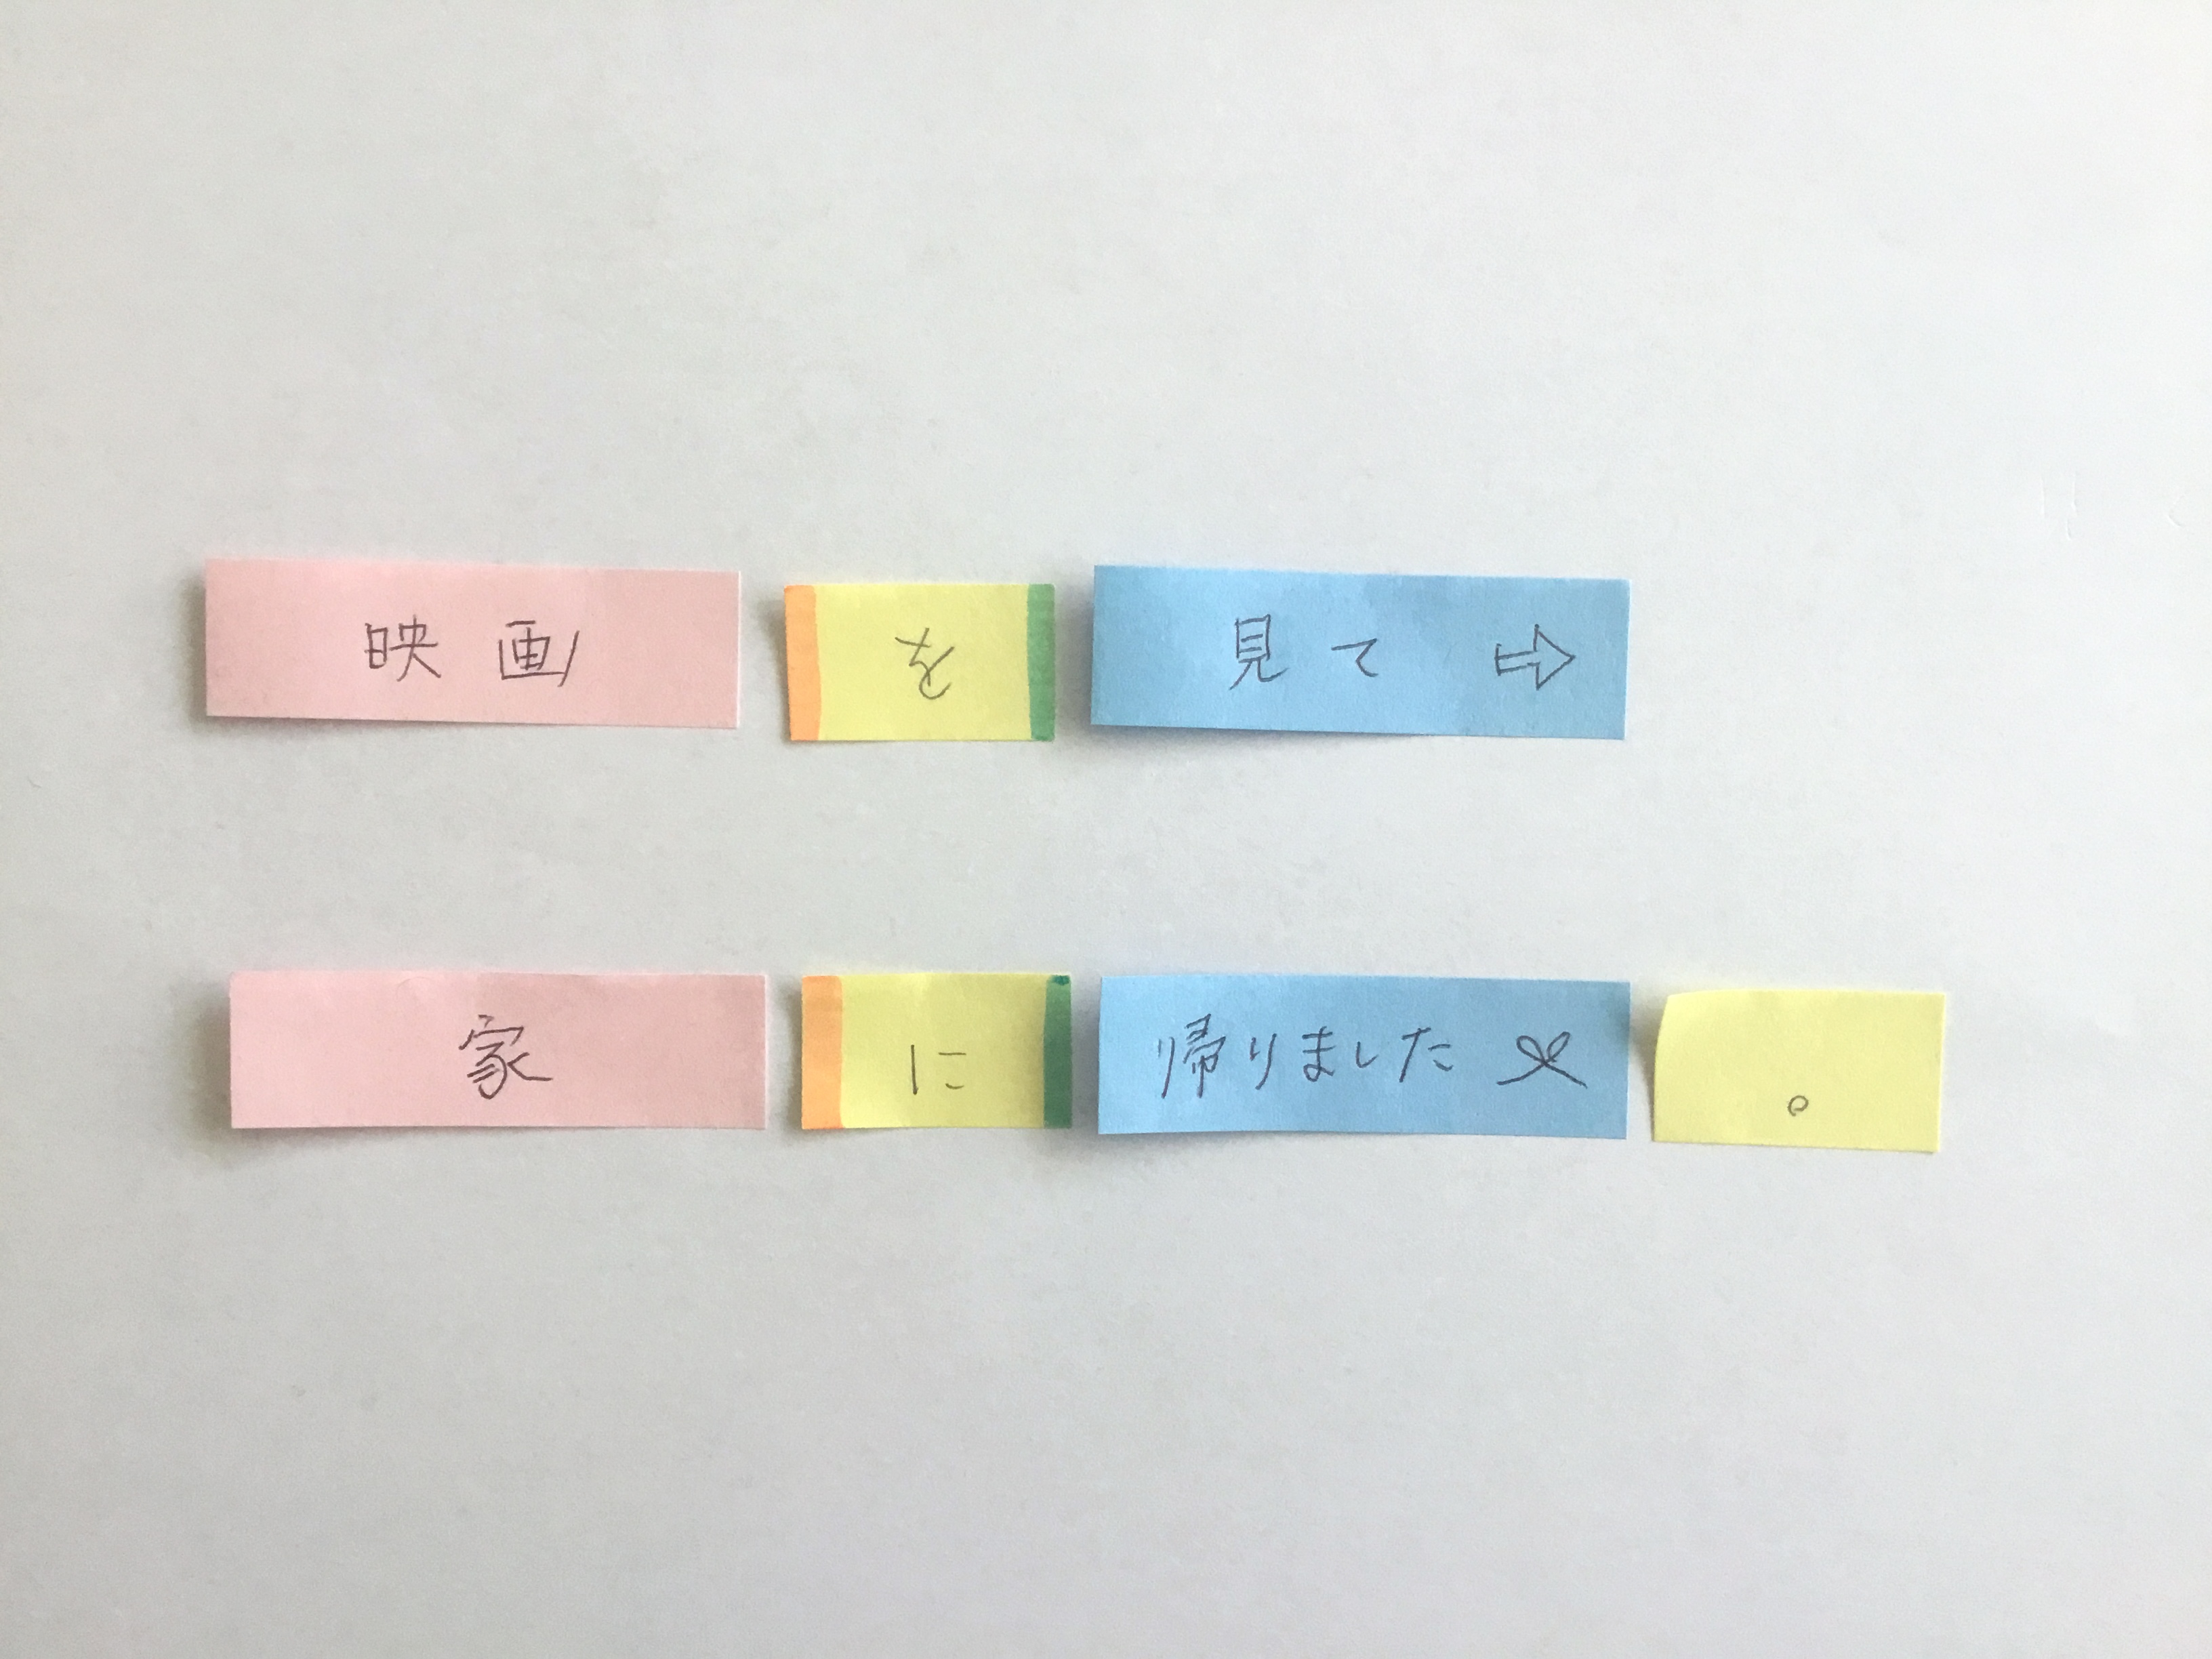 映画を見て⇨
家に帰りました。